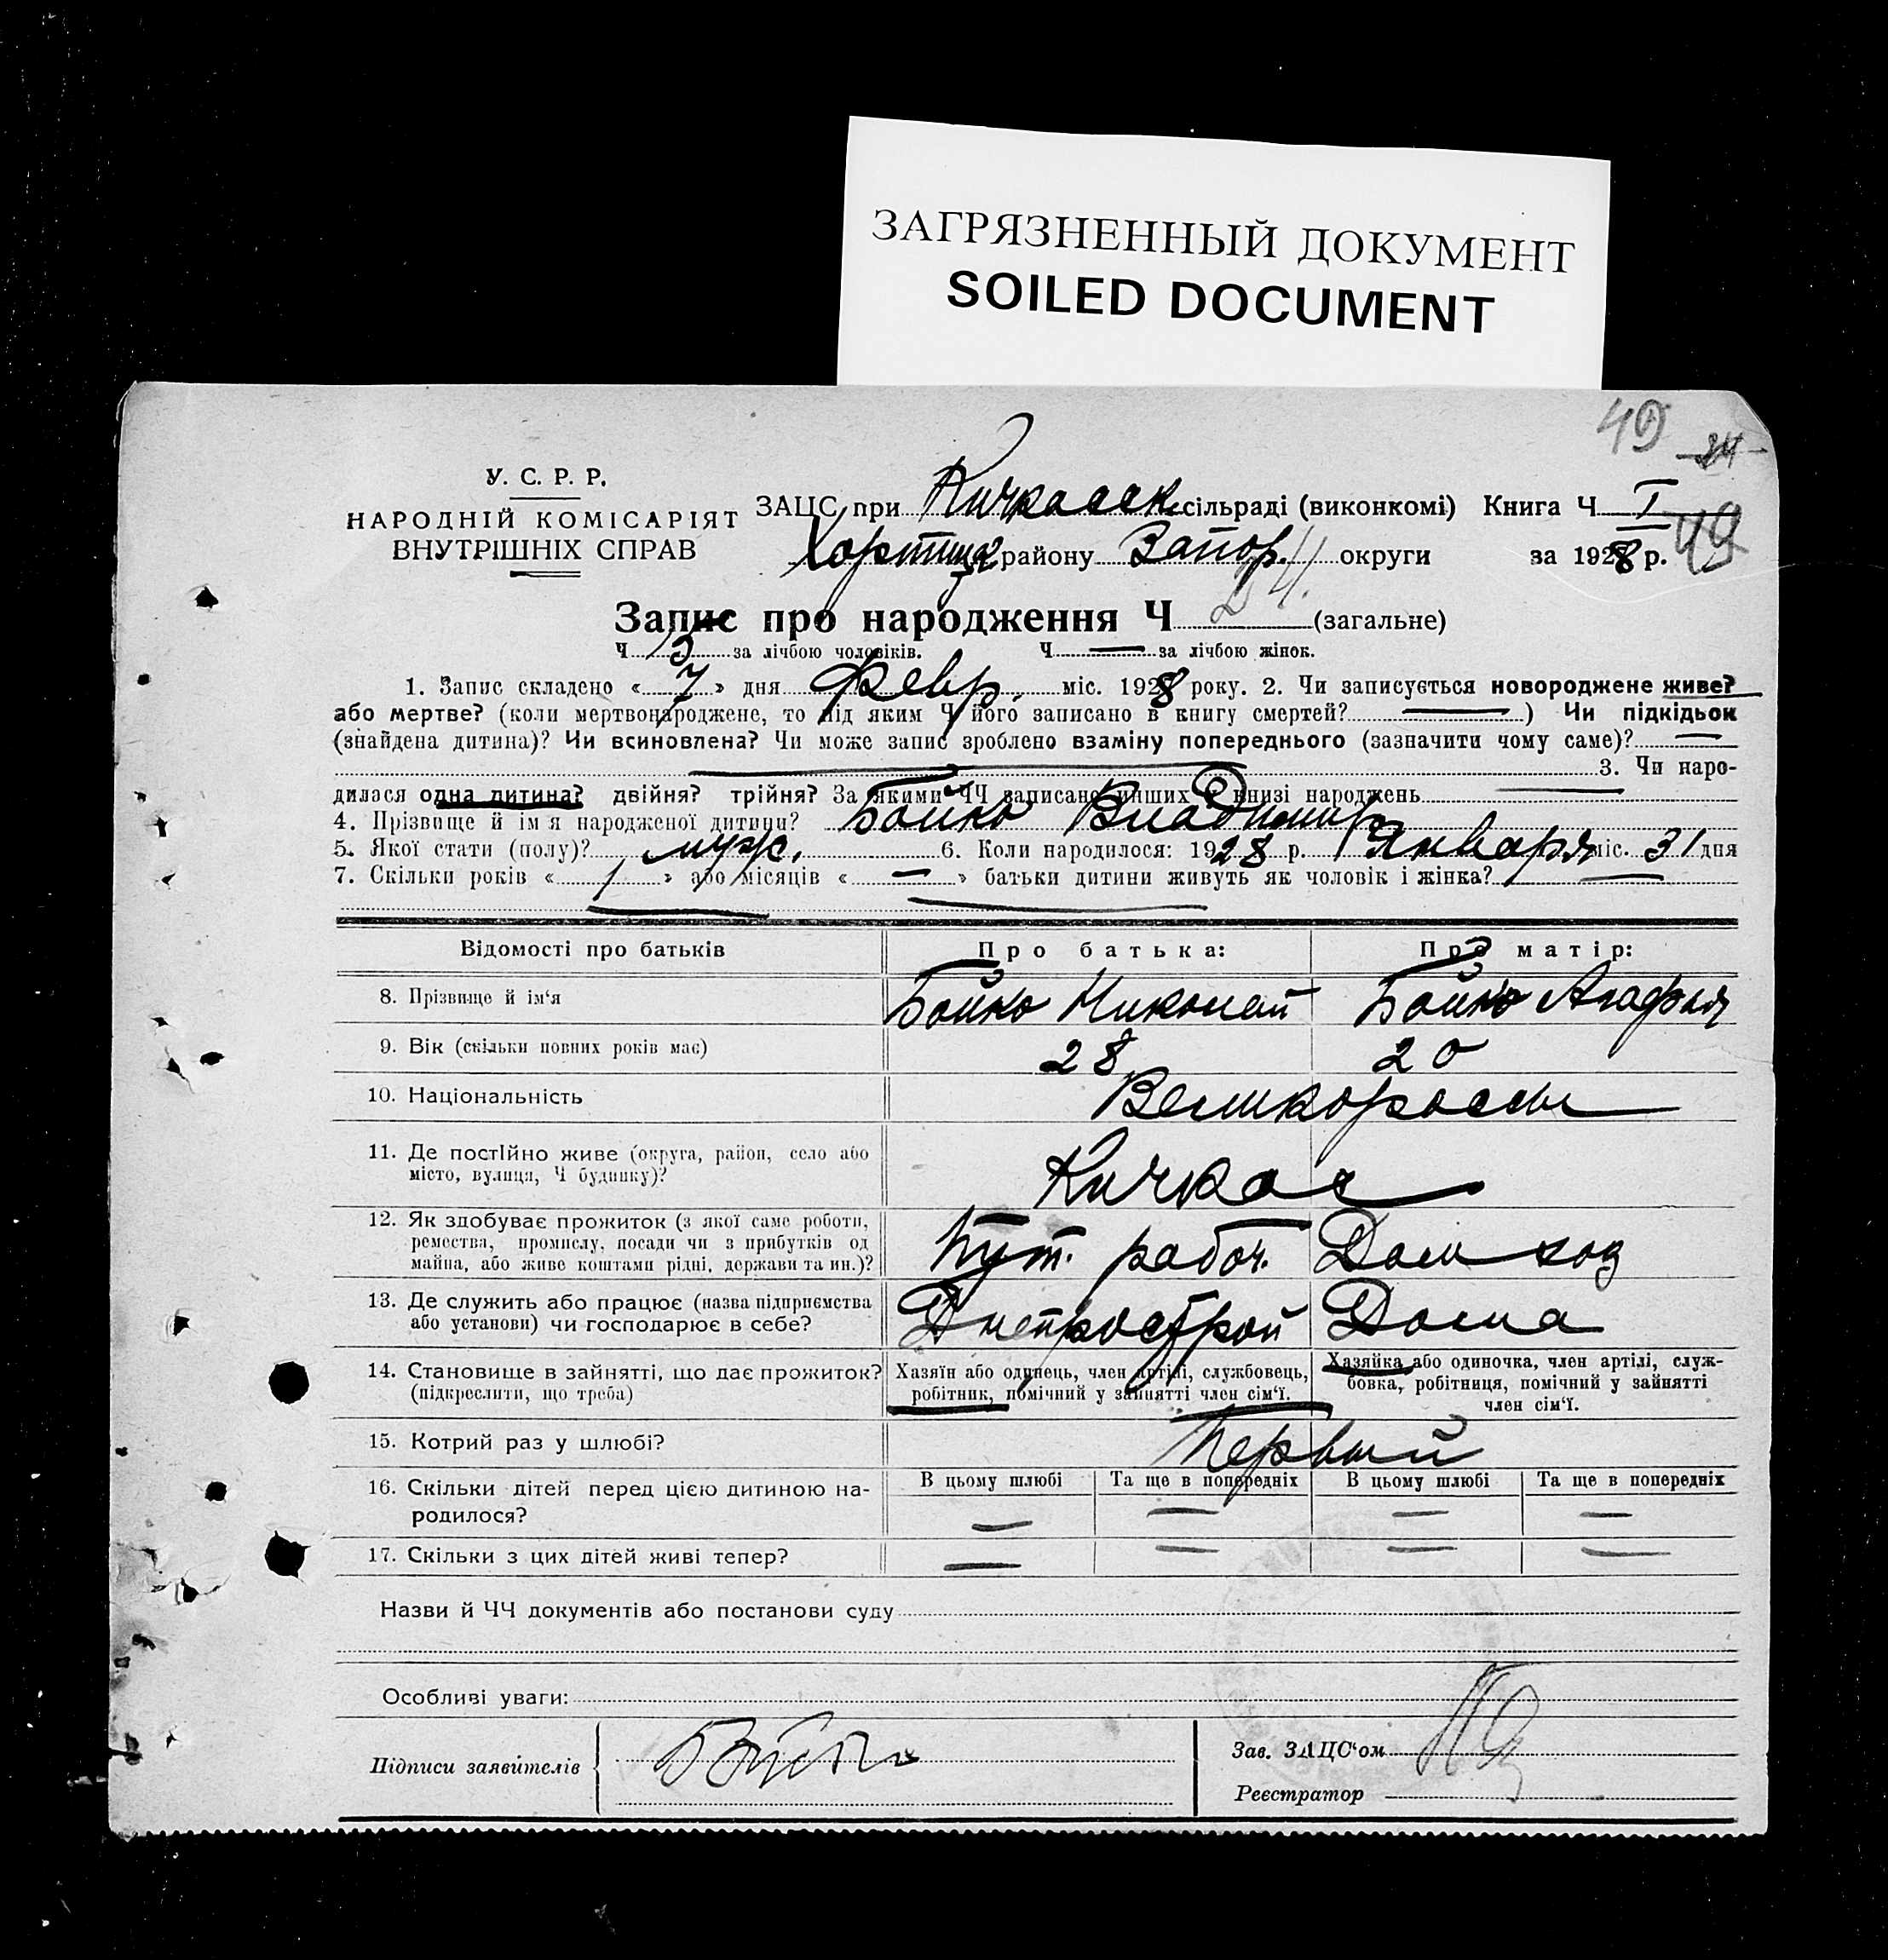 ЗАГРЯЗНЕННЫЙ ДОКУМЕНТ
SOILED DOCUMENT
49
24
У. С. Р. Р.
НАРОДНІЙ КОМІСАРІЯТ
ВНУТРІШНІХ СПРАВ
ЗАЦС при Кичкасск. сільраді (виконкомі) Книга Ч I
Хортиц. району Запор. округи за 1928 р.
49
Запис про народження Ч 24. (загальне)
Ч 13 за лічбою чоловіків. Ч — за лічбою жінок.
1. Запис складено « 7 » дня Февр. міс. 1928 року. 2. Чи записується новороджене живе?
або мертве? (коли мертвонароджене, то під яким Ч його записано в книгу смертей? — ) Чи підкідьок
(знайдена дитина)? Чи всиновлена? Чи може запис зроблено взаміну попереднього (зазначити чому саме)? —
3. Чи наро-
дилася одна дитина? двійня? трійня? За якими ЧЧ записано инших в книзі народжень —
4. Прізвище й ім я народженої дитини? Бойко Владимир
5. Якої стати (полу)? муж. 6. Коли народилося: 1928 р. Января міс. 31 дня
7. Скільки років « 1 » або місяців « — » батьки дитини живуть як чоловік і жінка? —
Відомості про батьків Про батька: Про матір:
8. Прізвище й ім'я Бойко Николай Бойко Агафия
9. Вік (скільки повних років має) 28 20
10. Національність Великороссы
11. Де постійно живе (округа, район, село або
місто, вулиця, Ч будинку)? Кичкас
12. Як здобуває прожиток (з якої саме роботи,
ремества, промислу, посади чи з прибутків од
майна, або живе коштами рідні, держави та ин.)? Пут. рабоч. Дом хоз
13. Де служить або працює (назва підприємства
або установи) чи господарює в себе? Днепрострой Дома
14. Становище в зайнятті, що дає прожиток?
(підкреслити, що треба)
Хазяїн або одинець, член артілі, службовець,
робітник, помічний у зайнятті член сім'ї.
Хазяйка або одиночка, член артілі, служ-
бовка, робітниця, помічний у зайнятті
член сім'ї.
15. Котрий раз у шлюбі? Первый
16. Скільки дітей перед цією дитиною на-
родилося?
В цьому шлюбі Та ще в попередніх В цьому шлюбі Та ще в попередніх
— — — —
17. Скільки з цих дітей живі тепер? — — — —
Назви й ЧЧ документів або постанови суду
Особливі уваги:
Підписи заявителів Бойко
Зав. ЗАЦС'ом
Реєстратор